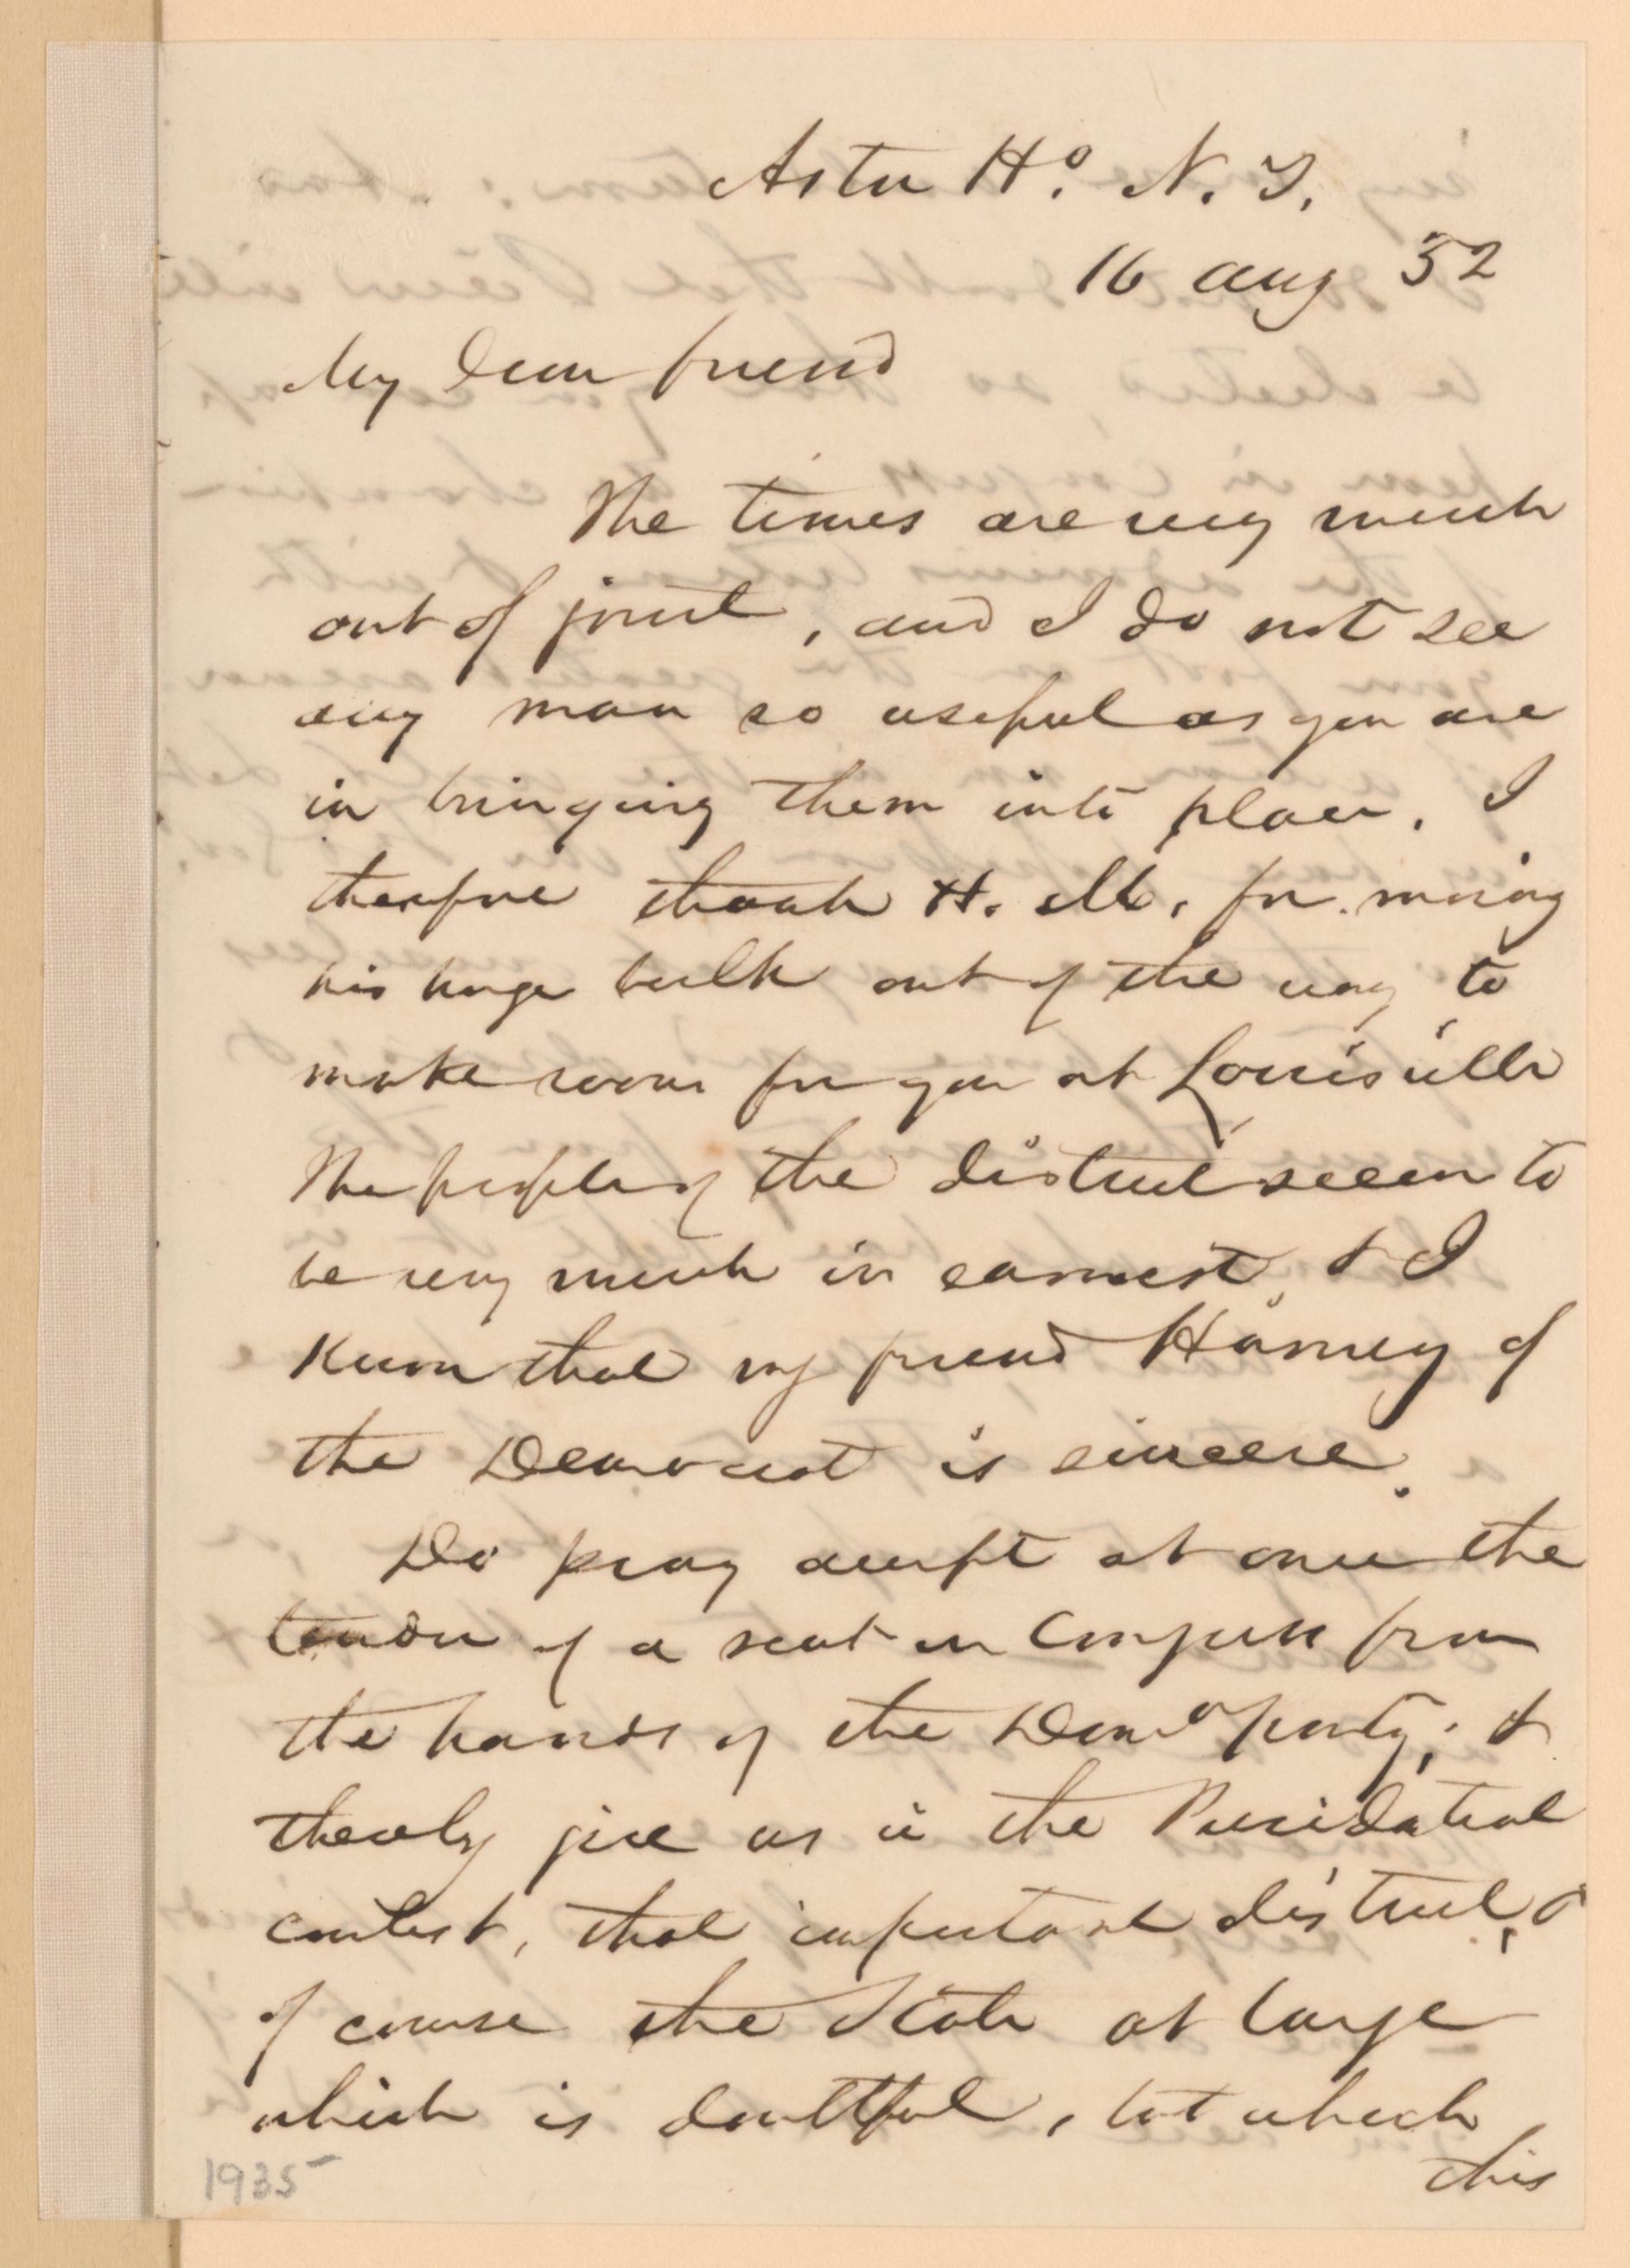 Astor Ho. N. Y.
16 aug 52
My Dear friend
The times are very much
out of joint, and I do not see
any man so useful as you are
in bringing them into place. I
therefore thank H. M. for moving
his huge bulk out of the way to
make room for you at Louisville
The people of the district seem to
be very much in earnest, & I
Know that my friend Harney of
the Democrat is sincere.
Do pray accept at once the
tender of a seat in Congress from
the hands of the Demo party; &
thereby give us in the Presidential
contest, that important district, &
of course the State at large
which is doubtful, but which
this
1935